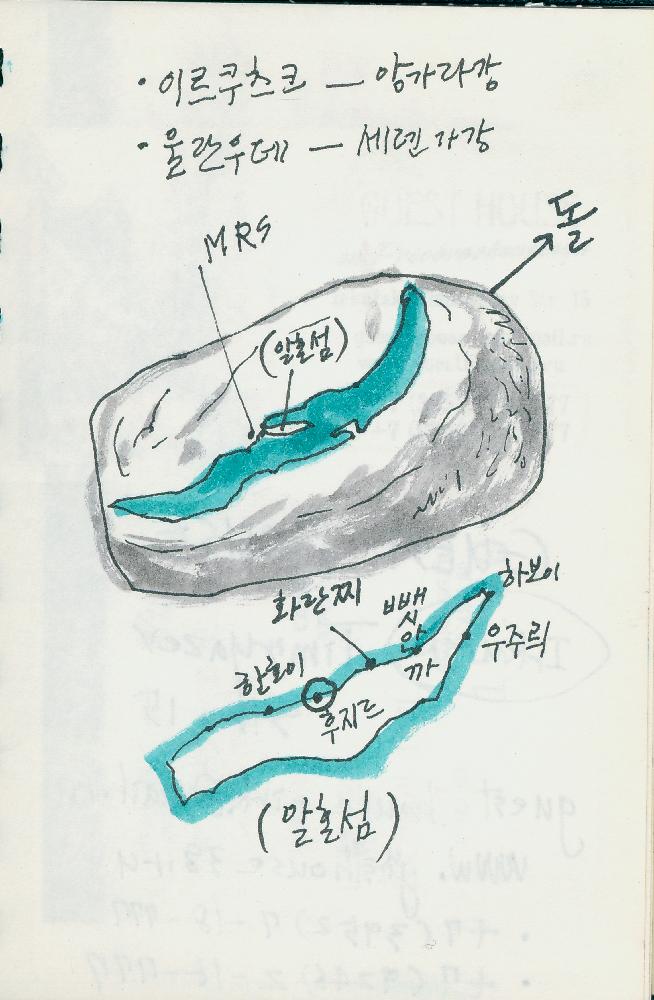 · 이르쿠츠크 — 앙가라강
· 울란우데 —
돌
MRS
(알혼섬)
하보이
화란찌
빼
시
안
까
우주릐
한호이
후지르
(알혼섬)